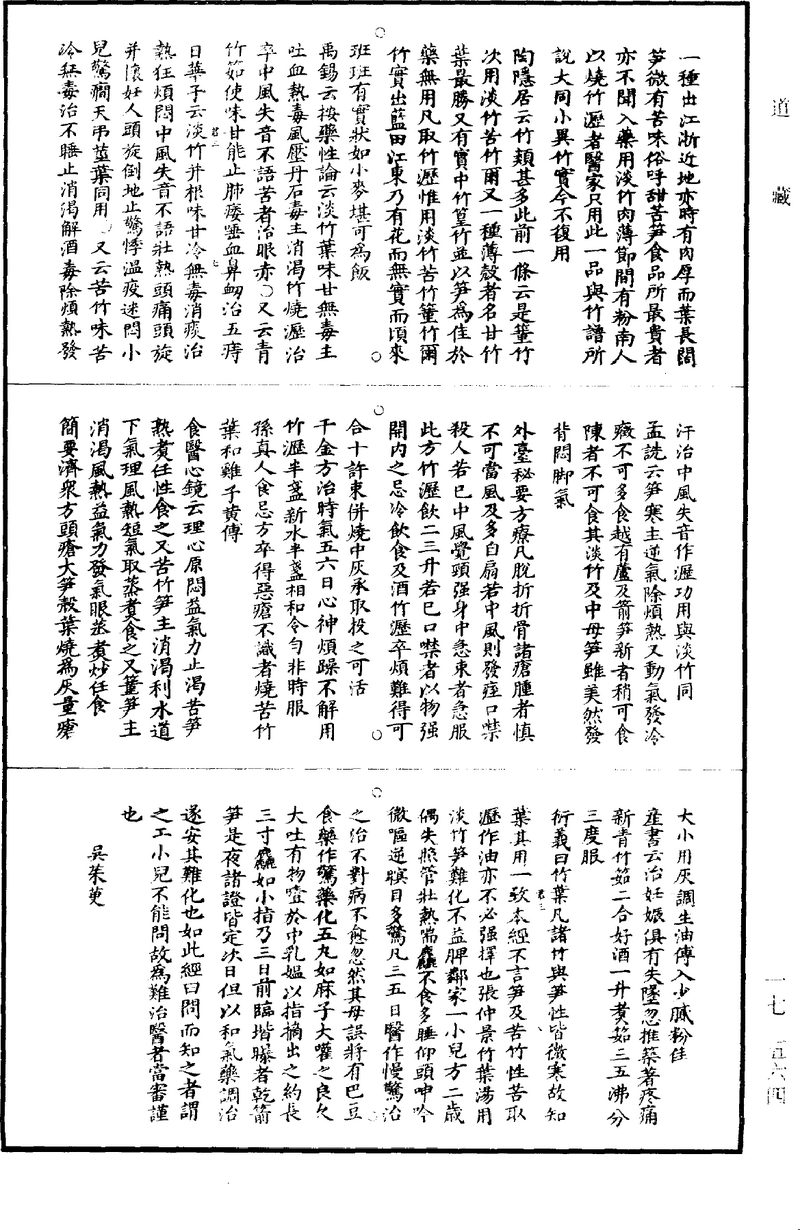 道藏
一種出江浙近地亦時有肉厚而葉長闊
笋微有苦味俗呼甜苦笋食品所最貴者
亦不聞入藥用淡竹肉薄節間有粉南人
以燒竹瀝者醫家只用此一品與竹譜所
說大同小異竹實今不復用
陶隱居云竹類甚多此前一條云是篁竹
次用淡竹苦竹爾又一種薄殼者名甘竹
葉最勝又有實中竹篁竹並以笋為佳於
藥無用凡取竹瀝惟用淡竹苦竹篁竹爾
竹實出藍田江東乃有花而無實而頃來
班班有實狀如小麥堪可為飯
禹錫云按藥性論云淡竹葉味甘無毒主
吐血熱毒風壓丹石毒主消渴竹燒瀝治
卒中風失音不語苦者治眼赤○又云青
竹茹使味甘能止肺痿唾血鼻衂治五痔
日華子云淡竹并根味甘冷無毒消痰治
熱狂煩悶中風失音不語壯熱頭痛頭旋
并懷妊人頭旋倒地止驚悸溫疫迷悶小
兒驚癇天弔莖葉同用○又云苦竹味苦
冷無毒治不睡止消渴解酒毒除煩熱發
汗治中風失音作瀝功用與淡竹同
孟詵云笋寒主逆氣除煩熱又動氣發冷
癥不可多食越有蘆及箭笋新者稍可食
陳者不可食其淡竹及中母笋雖美然發
背悶脚氣
外臺秘要方療凡脫折折骨諸瘡腫者慎
不可當風及多自扇若中風則發痓口噤
殺人若已中風覺頸强身中急束者急服
此方竹瀝飲二三升若已口噤者以物强
開內之忌冷飲食及酒竹瀝卒煩難得可
合十許束併燒中灰承取投之可活
千金方治時氣五六日心神煩躁不解用
竹瀝半盞新水半盞相和令勻非時服
孫真人食忌方卒得惡瘡不識者燒苦竹
葉和雞子黃傅
食醫心鏡云理心煩悶益氣力止渴苦笋
熟煮任性食之又苦竹笋主消渴利水道
下氣理風熱短氣取蒸煮食之又篁笋主
消渴風熱益氣力發氣眼蒸煮炒任食
簡要濟衆方頭瘡大笋殼葉燒為灰量瘡
大小用灰調生油傅入少膩粉佳
產書云治妊娠俱有失墜忽推築著疼痛
新青竹茹二合好酒一升煮茹三五沸分
三度服
衍義曰竹葉凡諸竹與笋性皆微寒故知
葉其用一致本經不言笋及苦竹性苦取
瀝作油亦不必强擇也張仲景竹葉湯用
淡竹笋難化不益脾鄰家一小兒方二歲
偶失照管壯熱喘麤不食多睡仰頭呻吟
微嘔逆瞑目多驚凡三五日醫作慢驚治
之治不對病不愈忽然其母誤將有巴豆
食藥作驚藥化五丸如麻子大嚾之良久
大吐有物噎於中乳媼以指摘出之約長
三寸麤如小指乃三日前臨堦曝者乾箭
笋是夜諸證皆定次日但以和氣藥調治
遂安其難化也如此經曰問而知之者謂
之工小兒不能問故為難治醫者當審謹
也
吳茱萸
一七 五六四